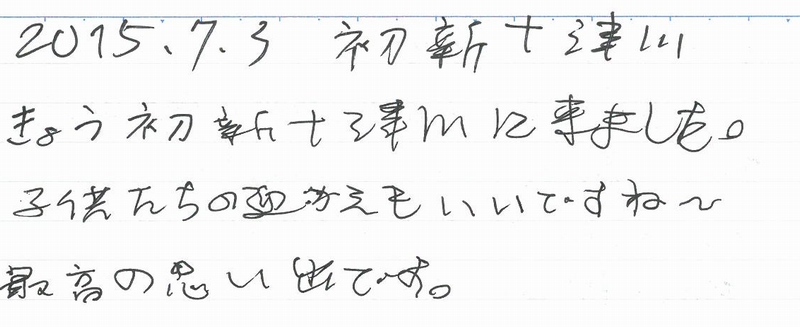 2015.7.3 初新十津川
きょう初新十津川に来ました。
子供たちの迎かえもいいですね〜
最高の思い出です。